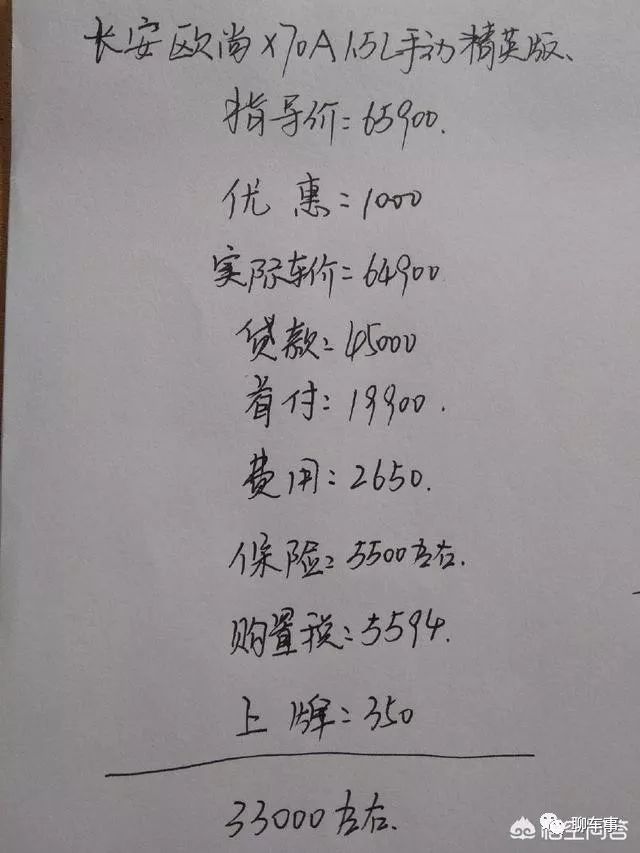 长安欧尚X70A 1.5L手动精英版、
指导价:65900.
优惠:1000
实际车价:64900
贷款:45000
首付:19900.
费用:2650.
保险:5500左右.
购置税:5594.
上牌:350
33000左右.
悟空问答
聊车事